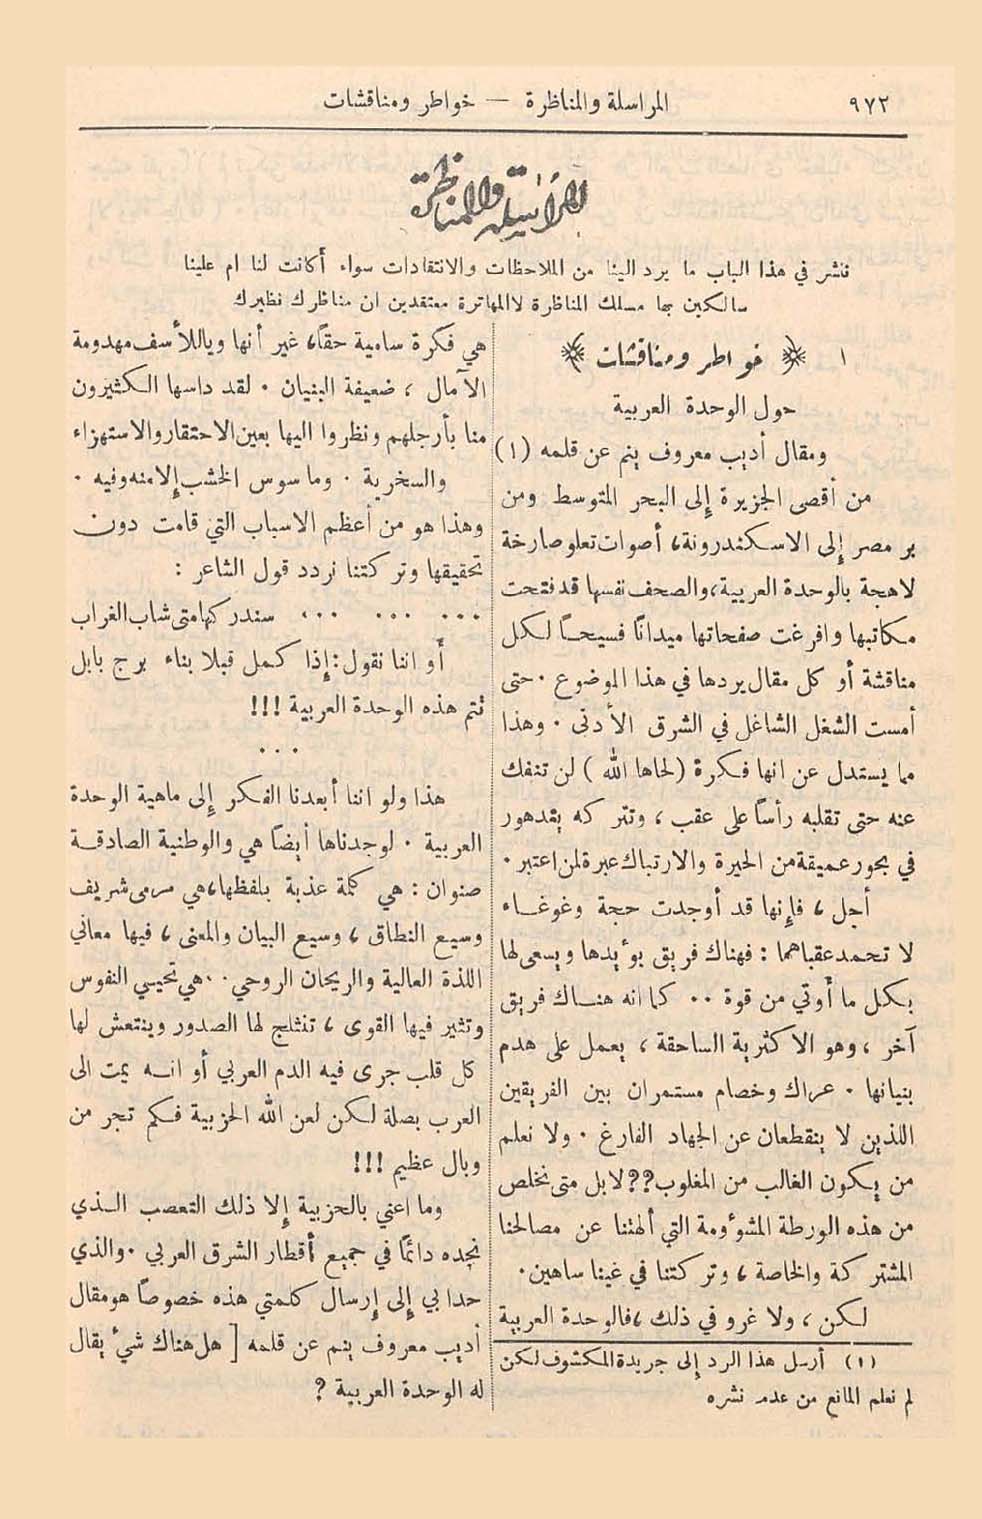 ٩٧٢ المراسلة والمناظرة — خواطر ومناقشات
المراسلة والمناظرة
ننشر في هذا الباب ما يرد الينا من الملاحظات والانتقادات سواء أكانت لنا ام علينا
سالكين بها مسلك المناظرة لاالمهاترة معتقدين ان مناظرك نظيرك
١ خواطر ومناقشات
حول الوحدة العربية
ومقال أديب معروف ينم عن قلمه (١)
من أقصى الجزيرة إلى البحر المتوسط ومن
بر مصر إلى الاسكندرونة، أصوات تعلو صارخة
لاهجة بالوحدة العربية، والصحف نفسها قد فتحت
مكاتبها وافرغت صفحاتها ميداناً فسيحاً لكل
مناقشة أو كل مقال يردها في هذا الموضوع . حتى
أمست الشغل الشاغل في الشرق الأدنى . وهذا
مما يستدل عن انها فكرة (لحاها الله) لن تنفك
عنه حتى تقلبه رأساً على عقب ، وتتركه يتدهور
في بحور عميقة من الحيرة والارتباك عبرة لمن اعتبر .
أجل ، فإنها قد أوجدت حجة وغوغاء
لا تحمد عقباهما : فهناك فريق يؤيدها ويسعى لها
بكل ما أوتي من قوة .. كما انه هناك فريق
آخر ، وهو الاكثرية الساحقة ، يعمل على هدم
بنيانها . عراك وخصام مستمران بين الفريقين
اللذين لا ينقطعان عن الجهاد الفارغ . ولا نعلم
من يكون الغالب من المغلوب؟؟ لابل متى نخلص
من هذه الورطة المشؤومة التي ألهتنا عن مصالحنا
المشتركة والخاصة ، وتركتنا في غينا ساهين.
لكن ، ولا غرو في ذلك ، فالوحدة العربية
(١) أرسل هذا الرد إلى جريدة المكشوف لكن
لم نعلم المانع من عدم نشره
هي فكرة سامية حقاً، غير أنها وياللأسف مهدومة
الآمال ، ضعيفة البنيان . لقد داسها الكثيرون
منا بأرجلهم ونظروا اليها بعين الاحتقار والاستهزاء
والسخرية . وما سوس الخشب إلا منه وفيه .
وهذا هو من أعظم الاسباب التي قامت دون
تحقيقها وتركتنا نردد قول الشاعر :
... ... ... سندركها متى شاب الغراب
أو اننا نقول: إذا كمل قبلا بناء برج بابل
تتم هذه الوحدة العربية !!!
...
هذا ولو اننا أبعدنا الفكر إلى ماهية الوحدة
العربية . لوجدناها أيضاً هي والوطنية الصادقة
صنوان : هي كلمة عذبة بلفظها، هي مرمى شريف
وسيع النطاق ، وسيع البيان والمعنى ، فيها معاني
اللذة العالية والريحان الروحي .. هي تحيي النفوس
وتثير فيها القوى ، تنثلج لها الصدور وينتعش لها
كل قلب جرى فيه الدم العربي أو انه يمت الى
العرب بصلة لكن لعن الله الحزبية فكم تجر من
وبال عظيم !!!
وما اعني بالحزبية إلا ذلك التعصب الذي
نجده دائماً في جميع أقطار الشرق العربي . والذي
حدا بي إلى إرسال كلمتي هذه خصوصاً هو مقال
أديب معروف ينم عن قلمه [ هل هناك شيء يقال
له الوحدة العربية ?